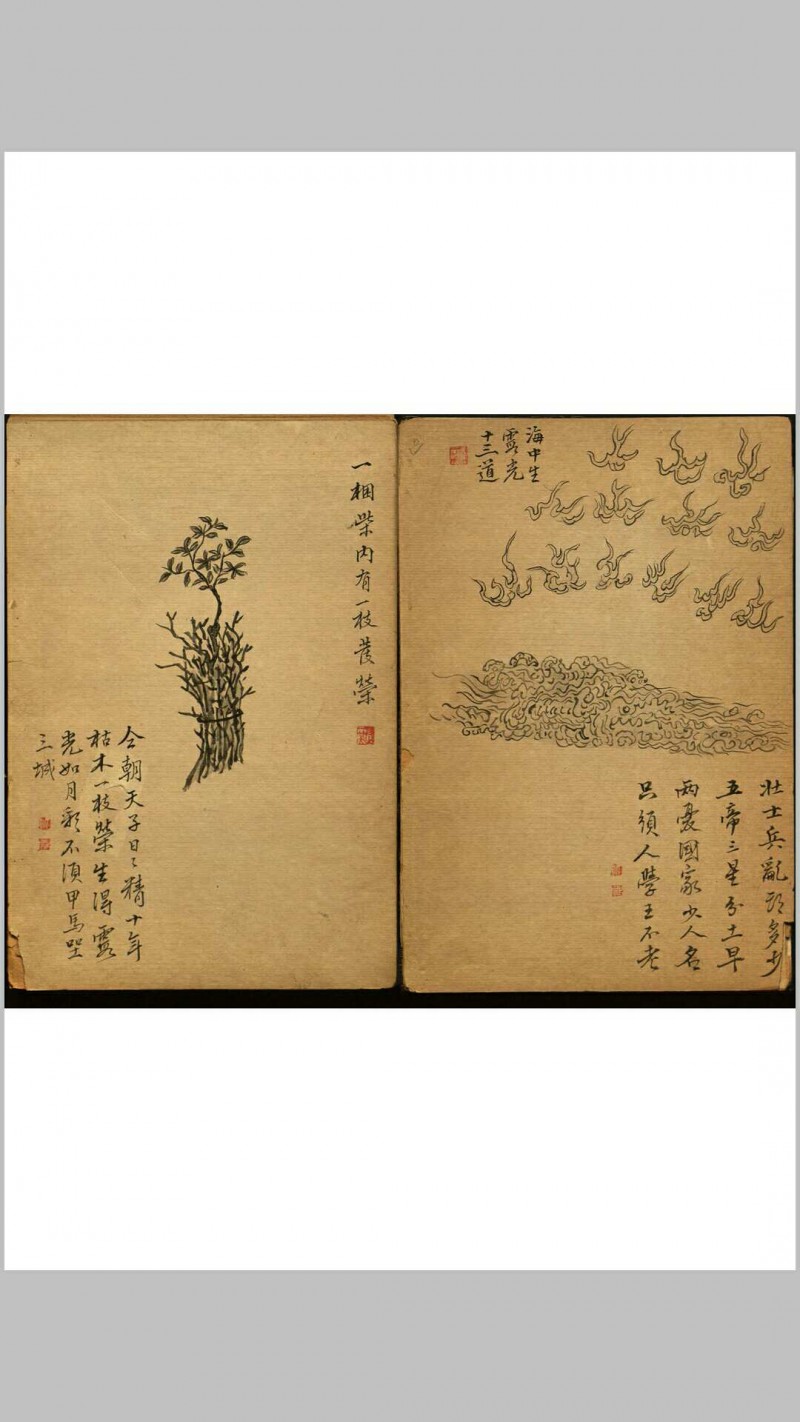 海中生
靈光
十三道
壯士兵亂部多少
五帝三星分土早
两憂國家少人名
只須人學王不老
一梱柴内有一枝發榮
今朝天子日〻精十年
枯木一枝榮生得靈
光如月彩不須甲馬
三城